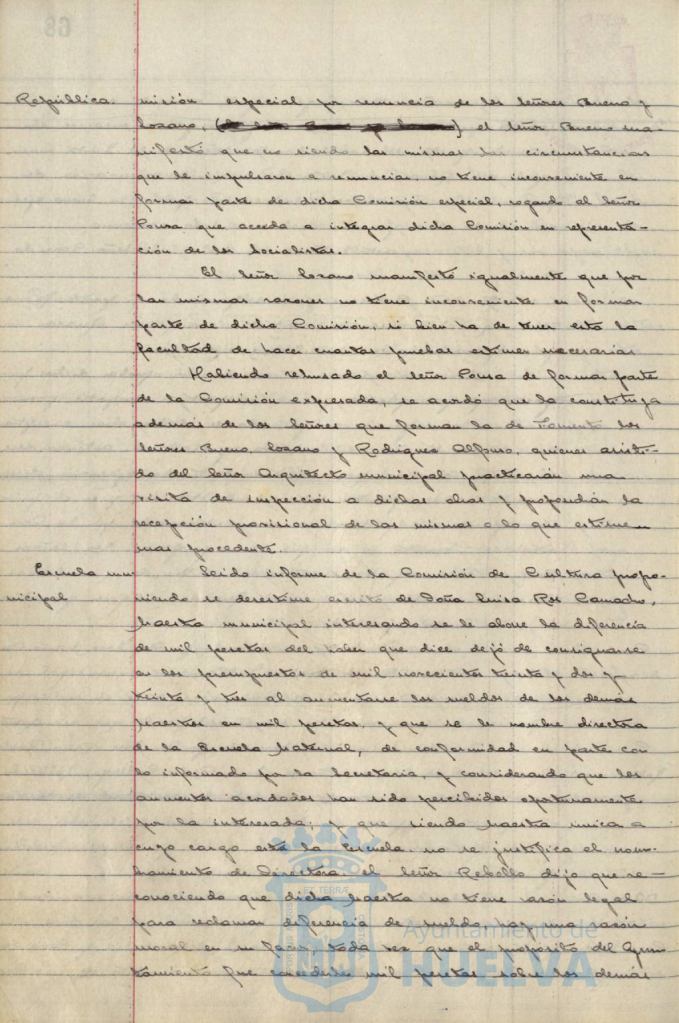 República. misión especial por renuncia de los Señores Bueno y
Lozano, el Señor Bueno ma-
nifestó que no siendo las mismas las circunstancias
que le impulsaron a renunciar, no tiene inconveniente en
formar parte de dicha Comisión especial, rogando al Señor
Ponsa que acceda a integrar dicha Comisión en representa-
ción de los Socialistas.
El Señor Lozano manifestó igualmente que por
las mismas razones no tiene inconveniente en formar
parte de dicha Comisión, si bien ha de tener esta la
facultad de hacer cuantas pruebas estimen necesarias
Habiendo rehusado el Señor Ponsa de formar parte
de la Comisión expresada, se acordó que la constituya
además de los Señores que forman la de Fomento los
Señores Bueno, Lozano y Rodriguez Alfonso, quienes asisti-
do del Señor Arquitecto municipal practicarán una
visita de inspección a dichas obras y propondrán la
recepción provisional de las mismas o lo que estimen
mas procedente.
Escuela mu-
nicipal
Leido informe de la Comisión de Cultura propo-
niendo se desestime escrito de Doña Luisa Ros Camacho,
Maestra municipal interesando se le abone la diferencia
de mil pesetas del haber que dice dejó de consignarse
en los presupuestos de mil novecientos treinta y dos y
treinta y tres al aumentarse los sueldos de los demás
Maestros en mil pesetas, y que se le nombre directora
de la Escuela Maternal, de conformidad en parte con
lo informado por la Secretaria, y considerando que los
aumentos acordados han sido percibidos oportunamente
por la interesada; y que siendo Maestra unica a
cuyo cargo está la Escuela no se justifica el nom-
bramiento de Directora, el Señor Rebollo dijo que re-
conociendo que dicha Maestra no tiene razón legal
para reclamar diferencia de sueldo hay una razón
moral en su favor, toda vez que el propósito del Ayun-
tamiento fue concederle mil pesetas sobre los demás
Ayuntamiento de
HUELVA